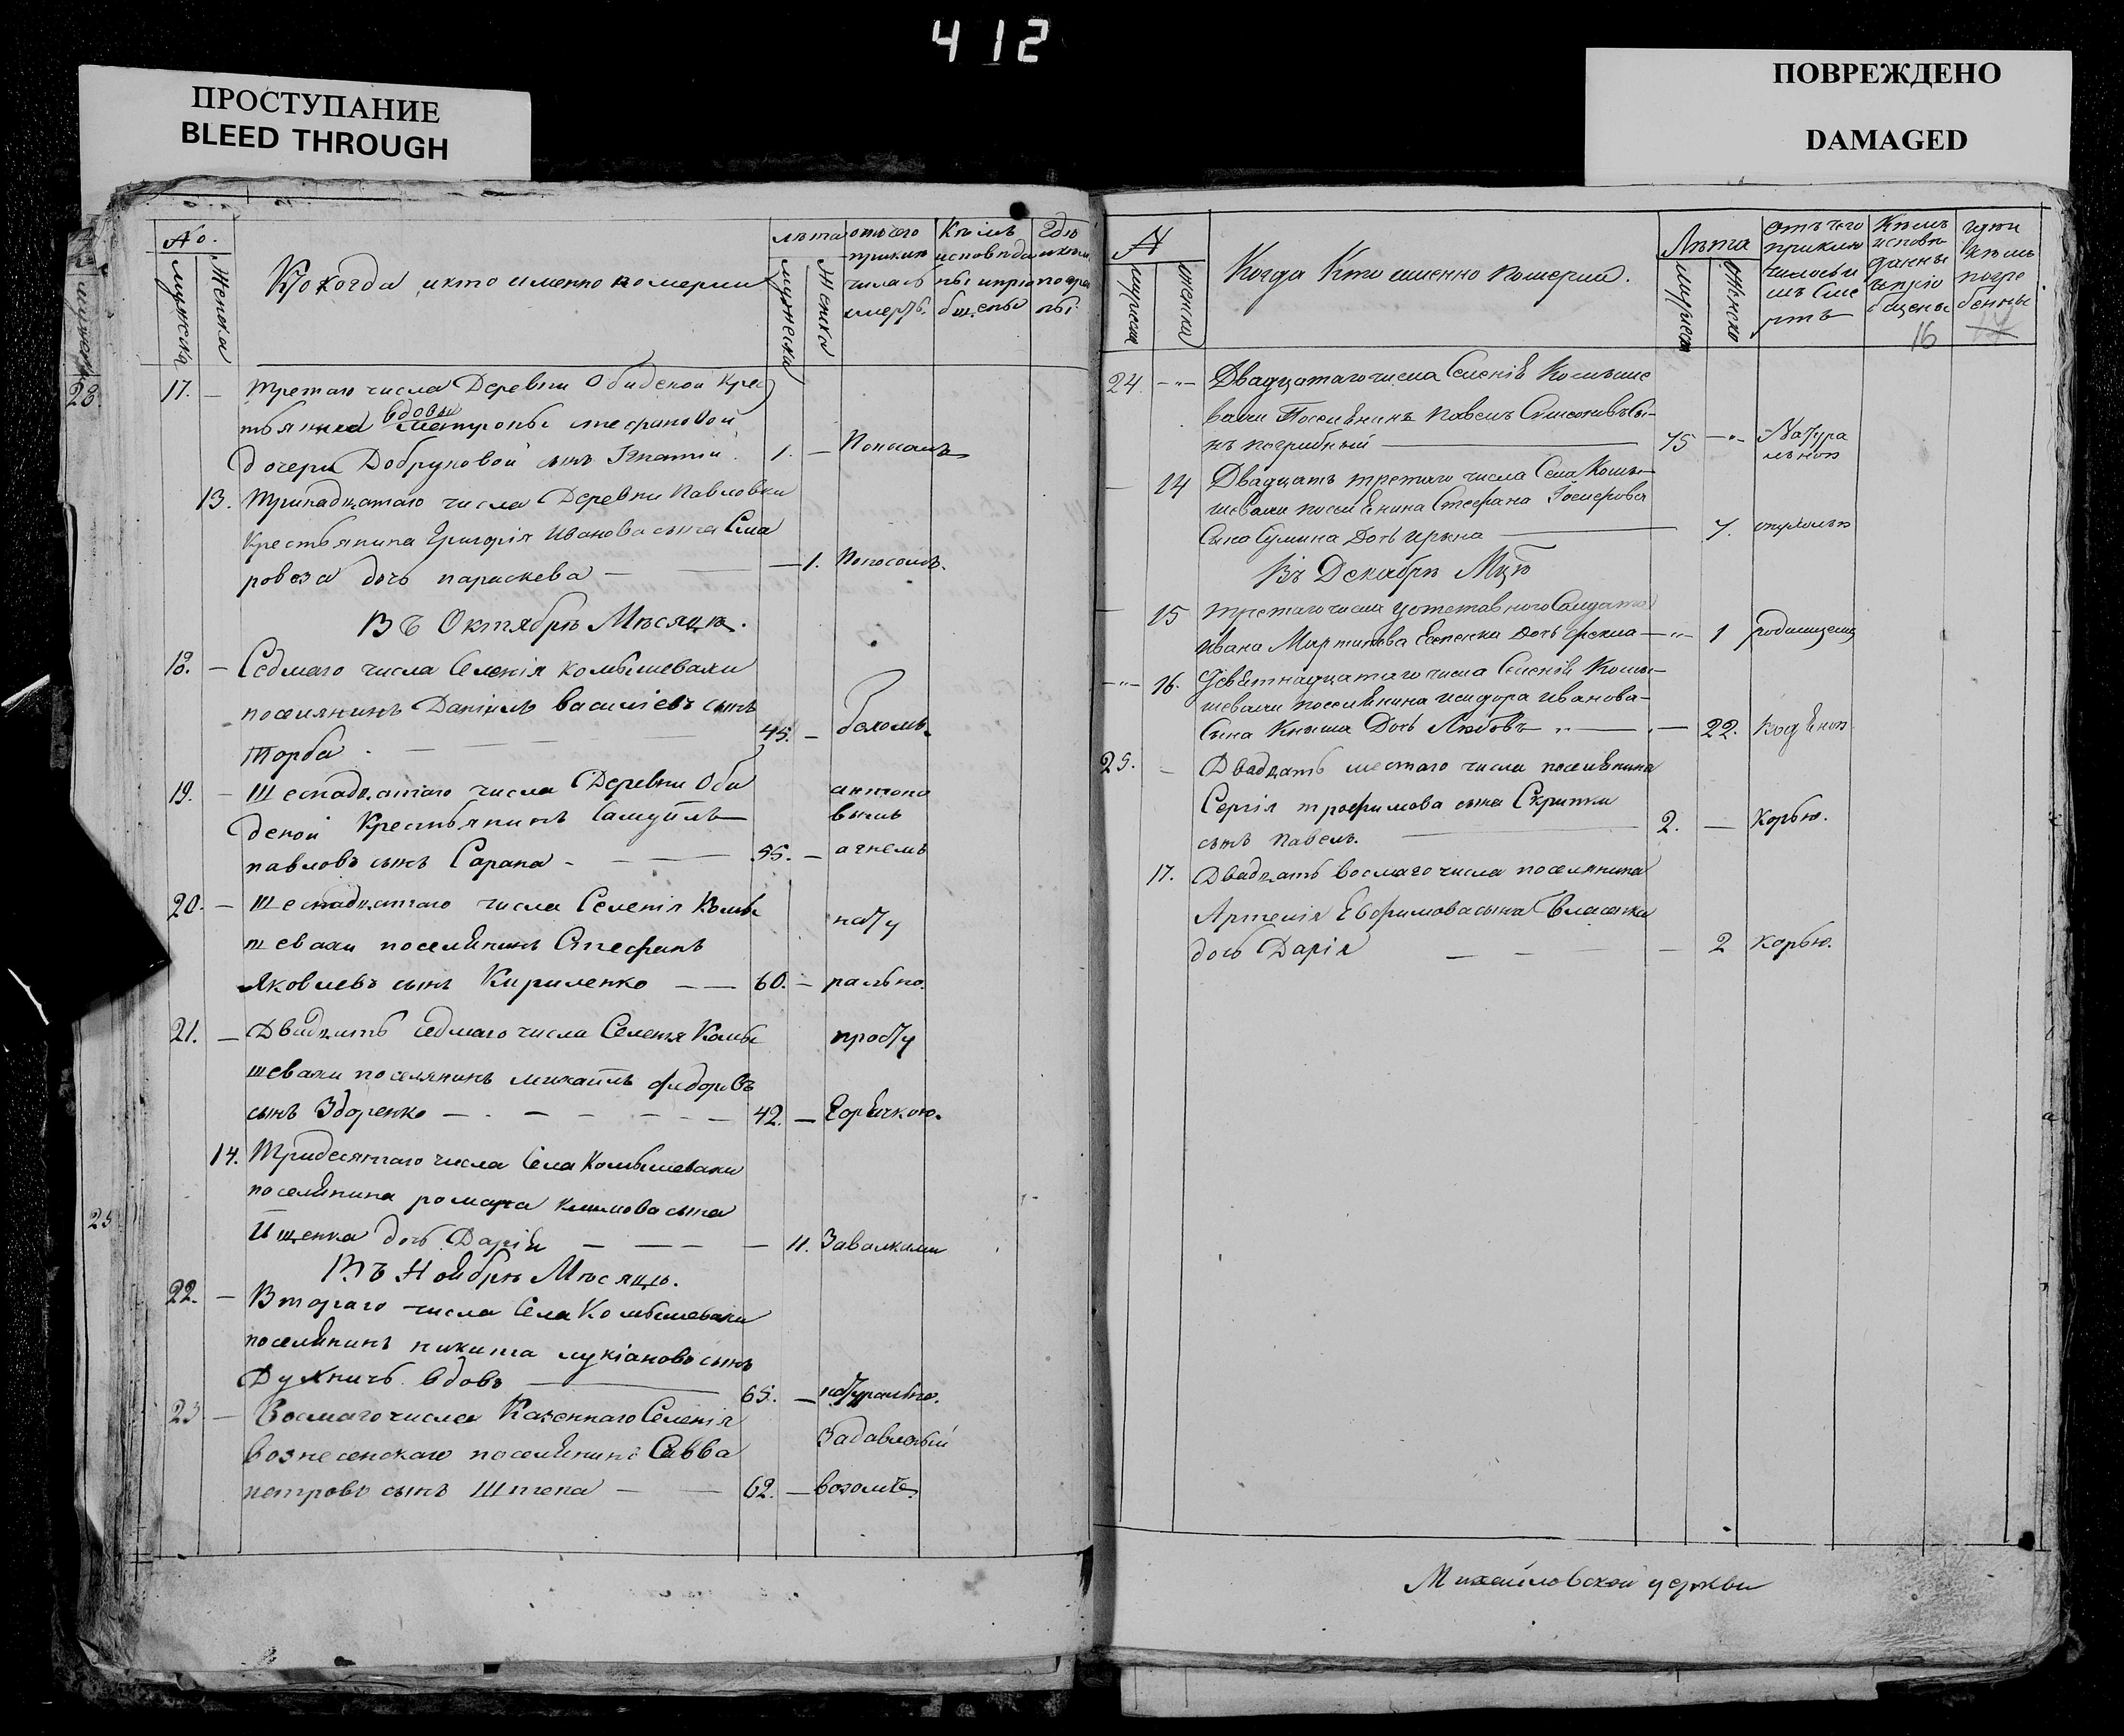 412
ПРОСТУПАНИЕ
BLEED THROUGH
ПОВРЕЖДЕНО
DAMAGED
No.
мужеска
Женска
когда икто именно померли
лѣта
мужеска
Женска
отъ чего
приклю
чилась
смерть.
Кѣмъ
исповѣда
ны и прі
бщены
Гдѣ
икѣм
погре
бы
28
17. – третаго числа Деревни Обиденой Крес
тьянки вдовы Матроны Стефановой
дочери Добруновой сынъ Игнатій 1. – Поносомъ
13. тринадцатаго числа Деревни Павловки
Крестьянина Григорія Иванова сына Сла
ровоза дочь параскева – 1. Поносомъ.
Въ Октябрѣ Мѣсяцѣ.
18. – Седмаго числа Селенія комышевахи
поселянинъ Даніилъ василіевъ сынъ
Торба 45. –
19. – Шеснадцатаго числа Деревни Оби
деной Крестьянинъ Самуилъ
павловъ сынъ Сарана – 55. –
антоно
вымъ
агнемъ
20. – Шеснадцатаго числа Селенія Комы
шевахи поселянинъ Стефанъ
Яковлевъ сынъ Кириленко – 60. –
нату
рально.
21. – Двадцать седмаго числа Селенія Комы
шевахи поселянинъ михаилъ федоровъ
сынъ Здоренко – 42. –
просту
Горячкою.
14. Тридесятаго числа Села Комышевахи
поселянина романа климова сына
Ищенка дочь Дарія – 11. Завалками
Въ Ноябрѣ Мѣсяцѣ.
22. – Втораго числа Села Комышевахи
поселянинъ никита лукіановъ сынъ
Духничъ вдовъ 65. – натурально.
23 – Восмаго числа Казеннаго Селенія
вознесенскаго поселянинъ Савва
петровъ сынъ Штепа – 62. –
Задавленый
возомъ.
25
№
мужеска
женска
Когда Кто именно померли.
Лѣта
мужеска
женско
отъ чего
приклю
чилась и
мъ сме
рть
Кѣмъ
исповѣ
данны
и пріо
бщены
16
гдѣ и
кѣмъ
погре
бенны
24 – Двадцатаго числа Селенія Комыше
вахи Поселянинъ Павелъ Симоновъ Сы-
нъ погрибный 75 –
Натура
льною
– 14 Двадцать третаго числа Села Комы-
шевахи поселянина Стефана Іосифова
Сына Сумина Дочь Ирина 7. опухомъ
Въ Декабрѣ Мцѣ
15 третаго числа у отставного Салдата
Ивана Мартинова Дочь фекла – 1 родимцемъ
– 16. Девятнадцатаго числа Селенія Комы-
шевахи поселянина исидора Иванова-
Сына Книша Дочь Любовь – 22. водяною
25. – Двадцать шестаго числа поселянина
Сергія трофимова сына Скрипки
сынъ Павелъ. 2. – Корью.
17. Двадцать восмаго числа поселянина
Артемія Евфимова сына Власенка
дочь Дарія – 2 корью.
Михайловской церкви